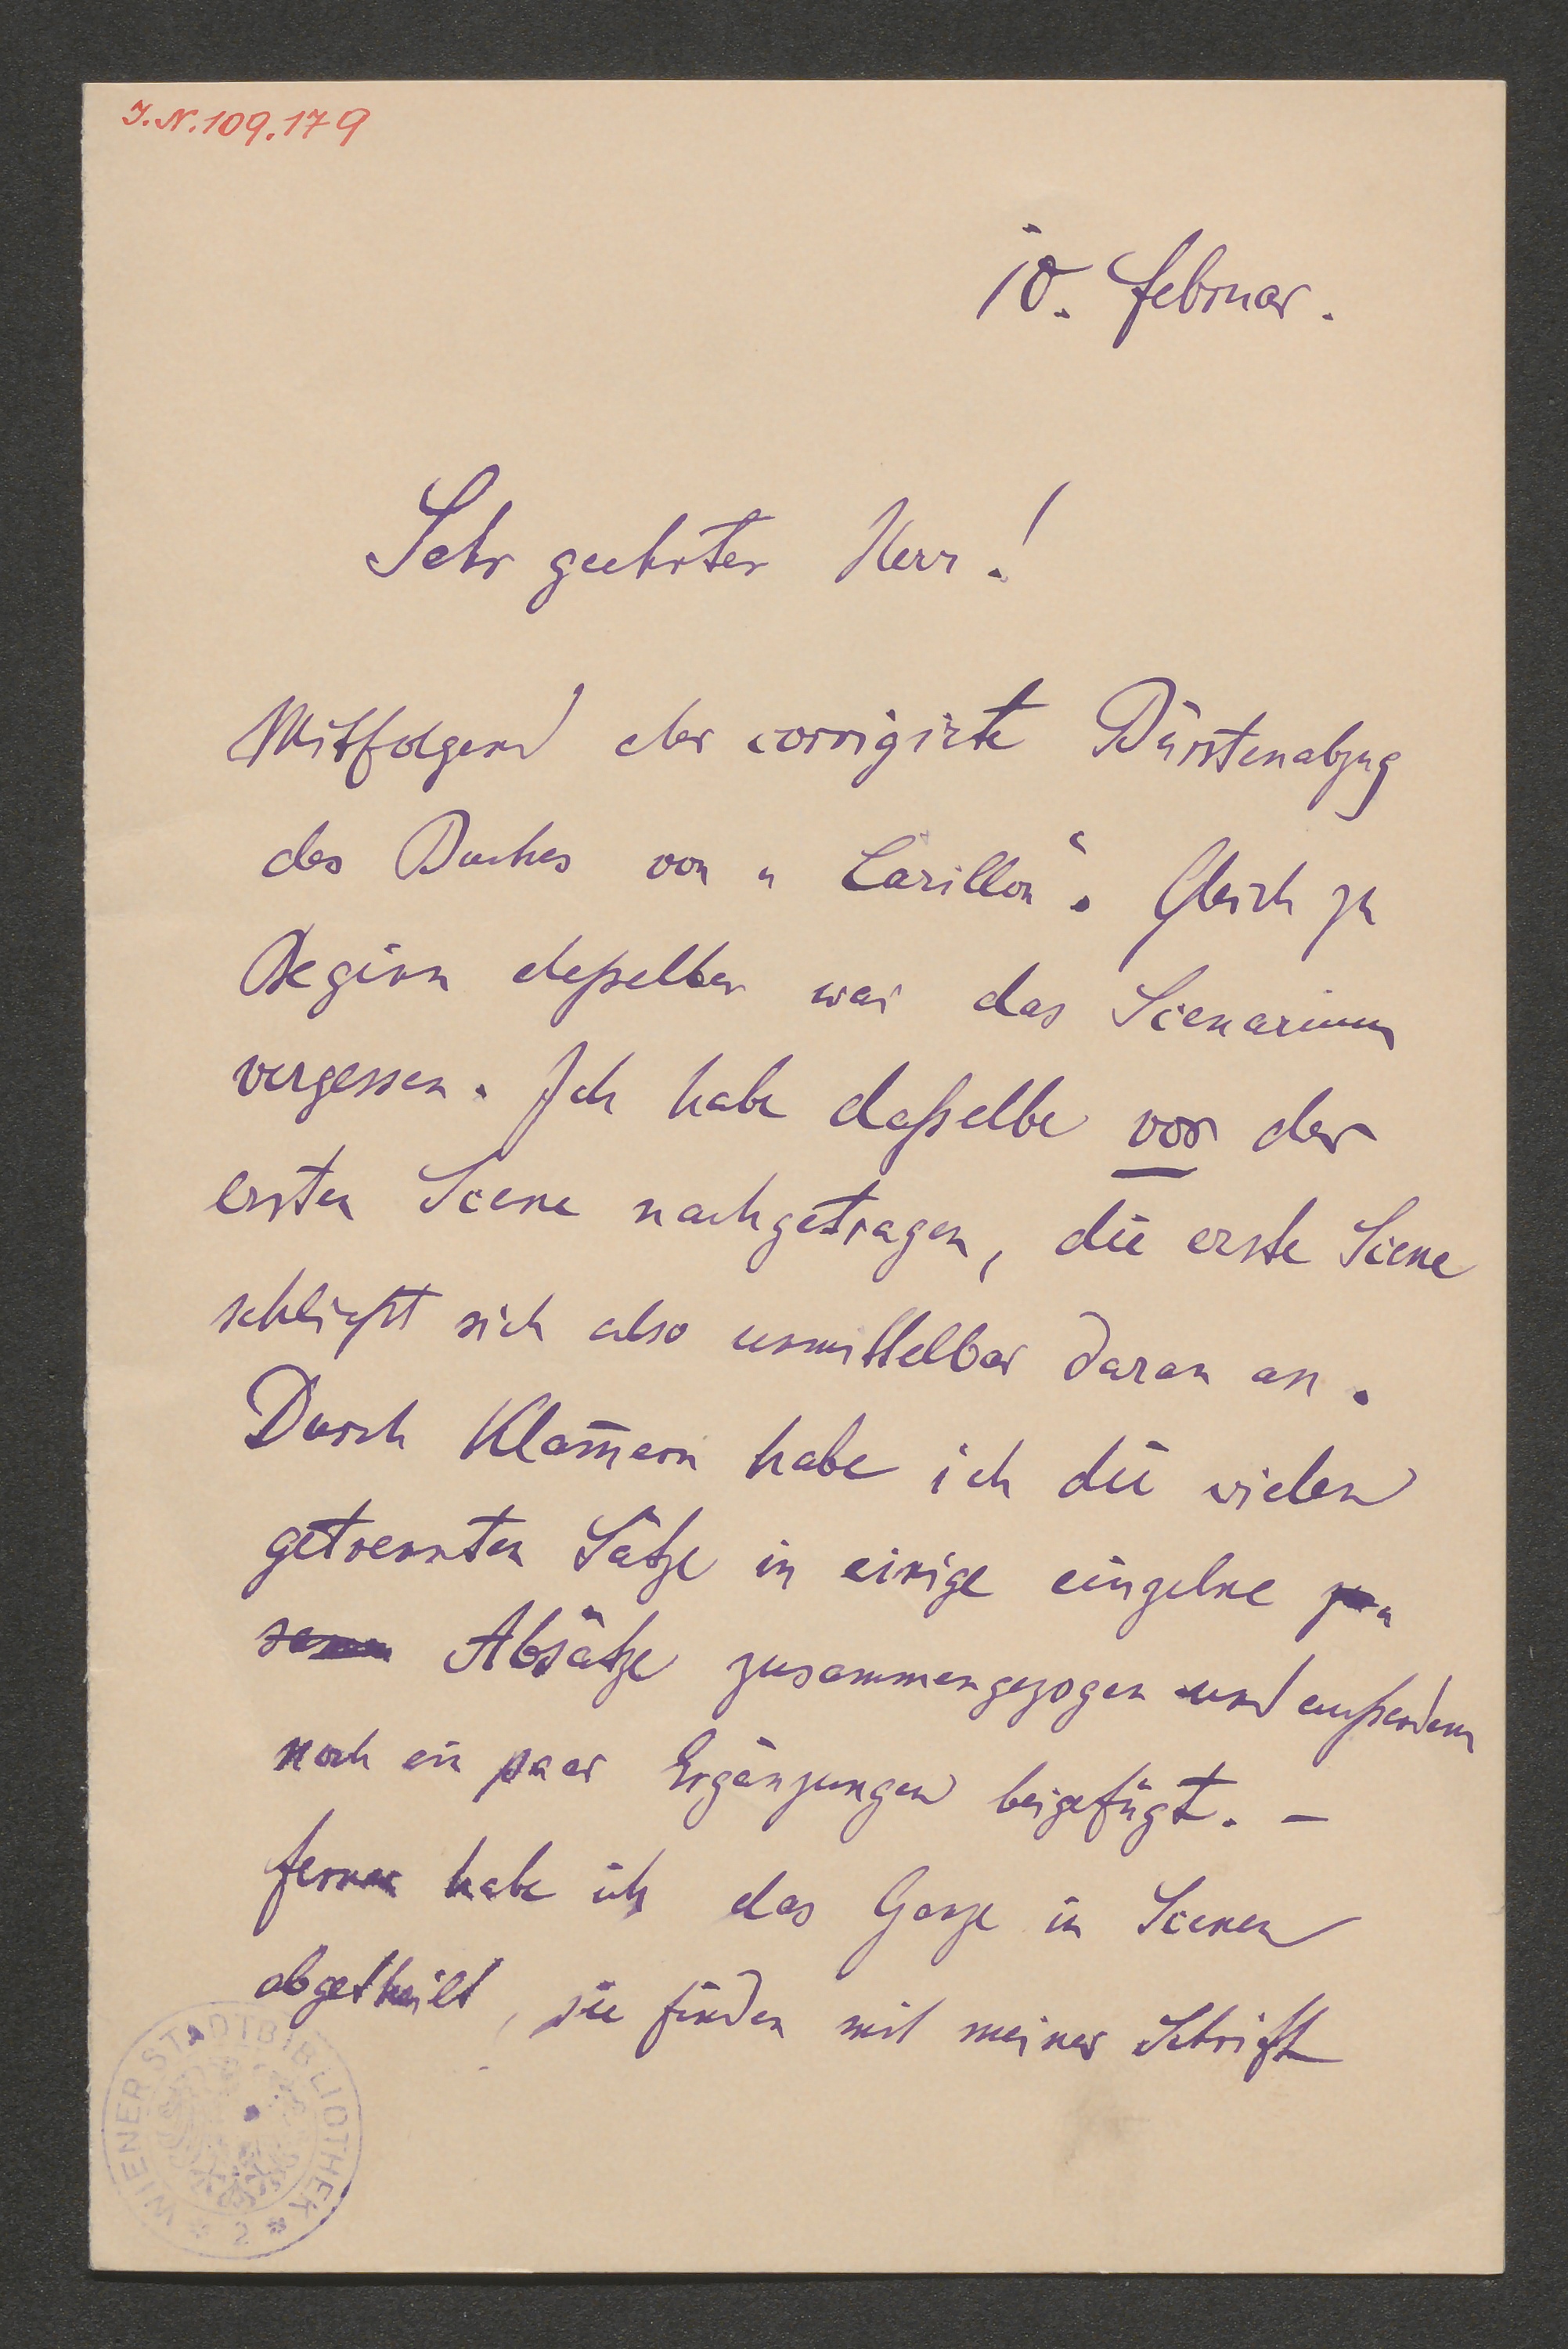 I.N. 109.179
10. Februar.
Sehr geehrter Herr!
Mitfolgend der corrigirte Bürstenabzug
des Buches von „Carillon“. Gleich zu
Beginn deßelben war das Scenarium
vergessen. Ich habe daßelbe vor der
ersten Scene nachgetragen, die erste Scene
schließt sich also unmittelbar daran an.
Durch Klam̅ern habe ich die vielen
getrennten Sätze in einige einzelne
Absätze zusammengezogen und außerdem
noch ein paar Ergänzungen beigefügt. –
Ferner habe ich das Ganze in Scenen
abgetheilt, sie finden mit meiner Schrift
WIENER STADTBIBLIOTHEK
* 2 *